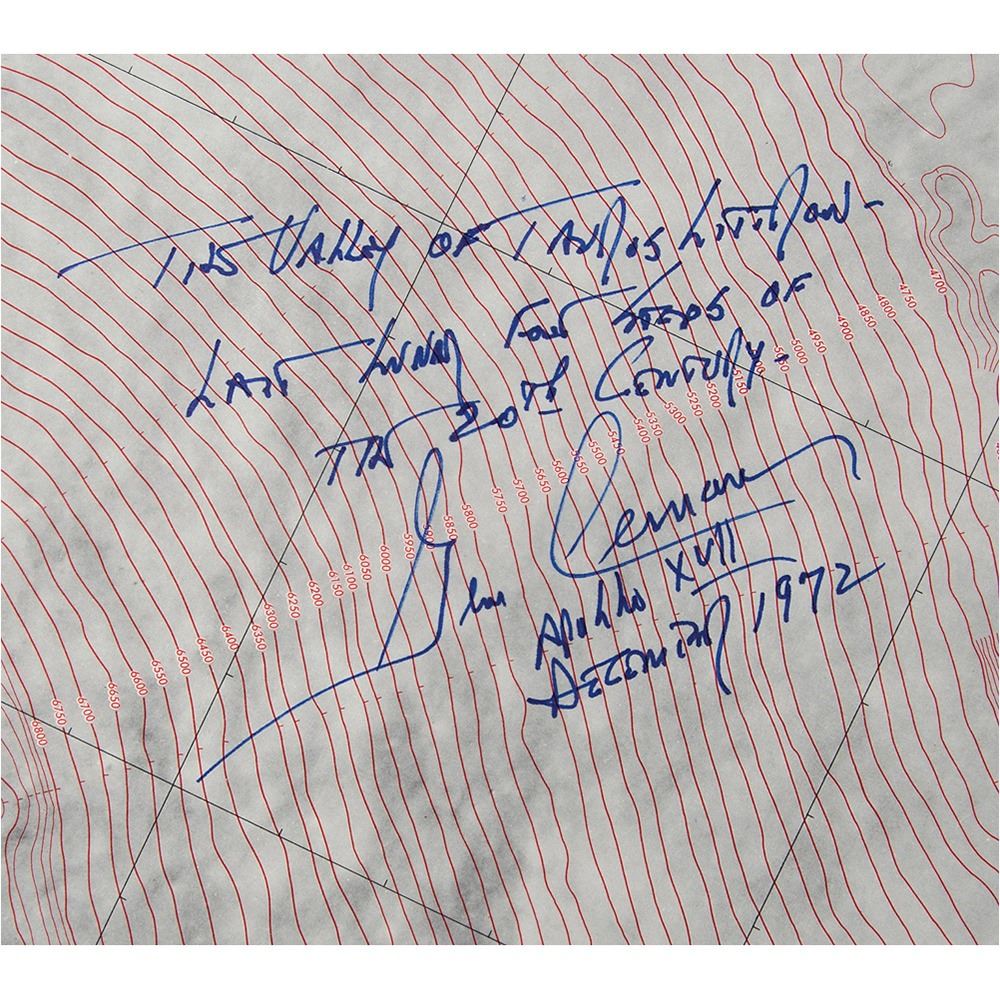 THE VALLEY OF TAURUS LITTROW -
LAST LUNAR FOOT STEPS OF
THE 20TH CENTURY -
Gene Cernan
APOLLO XVII
DECEMBER 1972
4700
4750
4800
4850
4900
4950
5000
5050
5150
5200
5250
5300
5350
5400
5450
5500
5550
5600
5650
5700
5750
5800
5850
5900
5950
6000
6050
6100
6150
6200
6250
6300
6350
6400
6450
6500
6550
6600
6650
6700
6750
6800